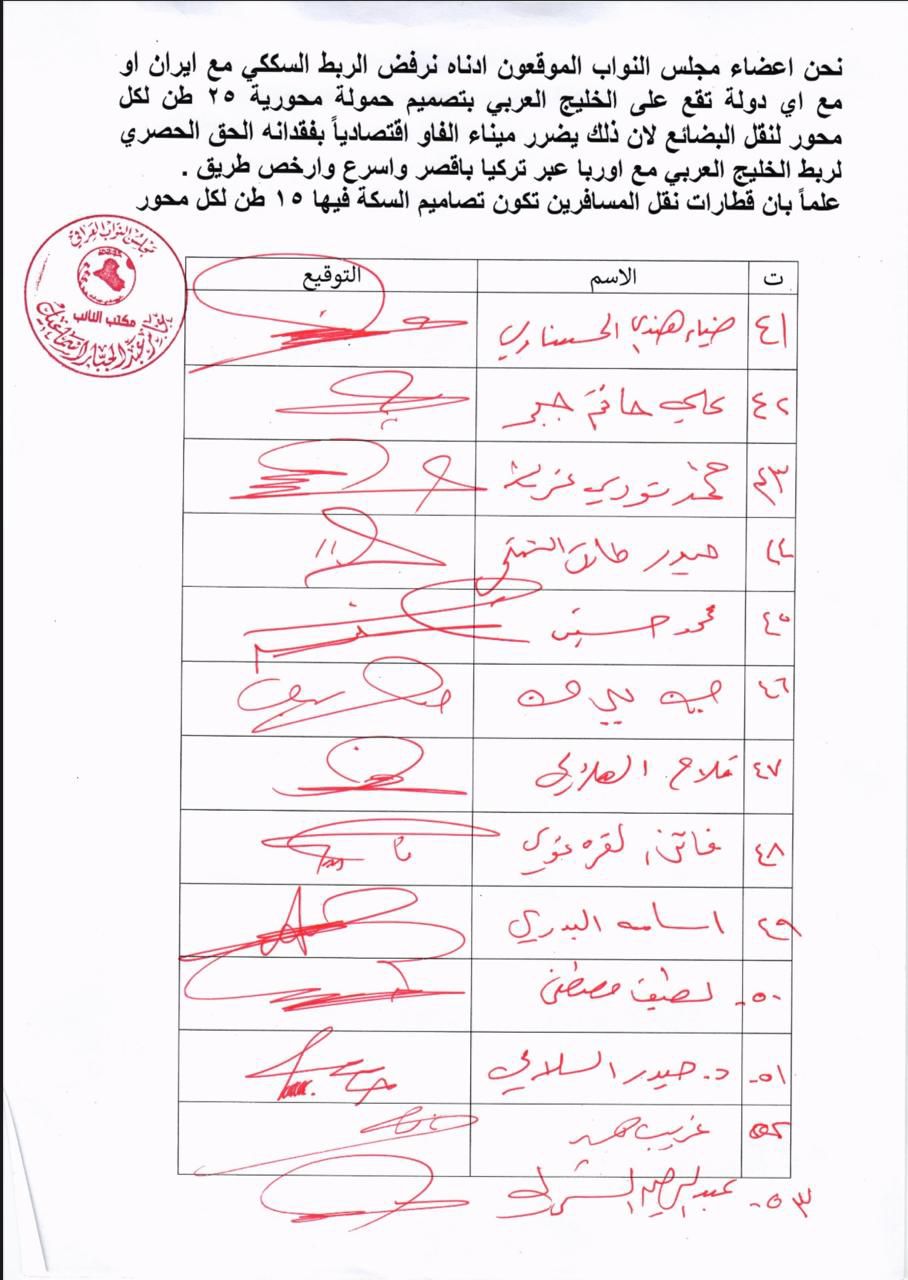 نحن اعضاء مجلس النواب الموقعون ادناه نرفض الربط السككي مع ايران او
مع اي دولة تقع على الخليج العربي بتصميم حمولة محورية ٢٥ طن لكل
محور لنقل البضائع لان ذلك يضرر ميناء الفاو اقتصادياً بفقدانه الحق الحصري
لربط الخليج العربي مع اوربا عبر تركيا باقصر واسرع وارخص طريق .
علماً بان قطارات نقل المسافرين تكون تصاميم السكة فيها ١٥ طن لكل محور
مجلس النواب العراقي
مكتب النائب
عامر عبد الجبار اسماعيل
ت الاسم التوقيع
٤١ ضياء هندي الحسناوي
٤٢ علي حاتم جبر
٤٣ محمد نوري عزيز
٤٤ حيدر طارق
٤٥ محمد حسين
٤٦
٤٧ فلاح الهلالي
٤٨ فاتن القره غولي
٤٩ اسامه البدري
٥٠- لطيف مصطفى
٥١- د. حيدر السلامي
٥٢ غريب
٥٣-